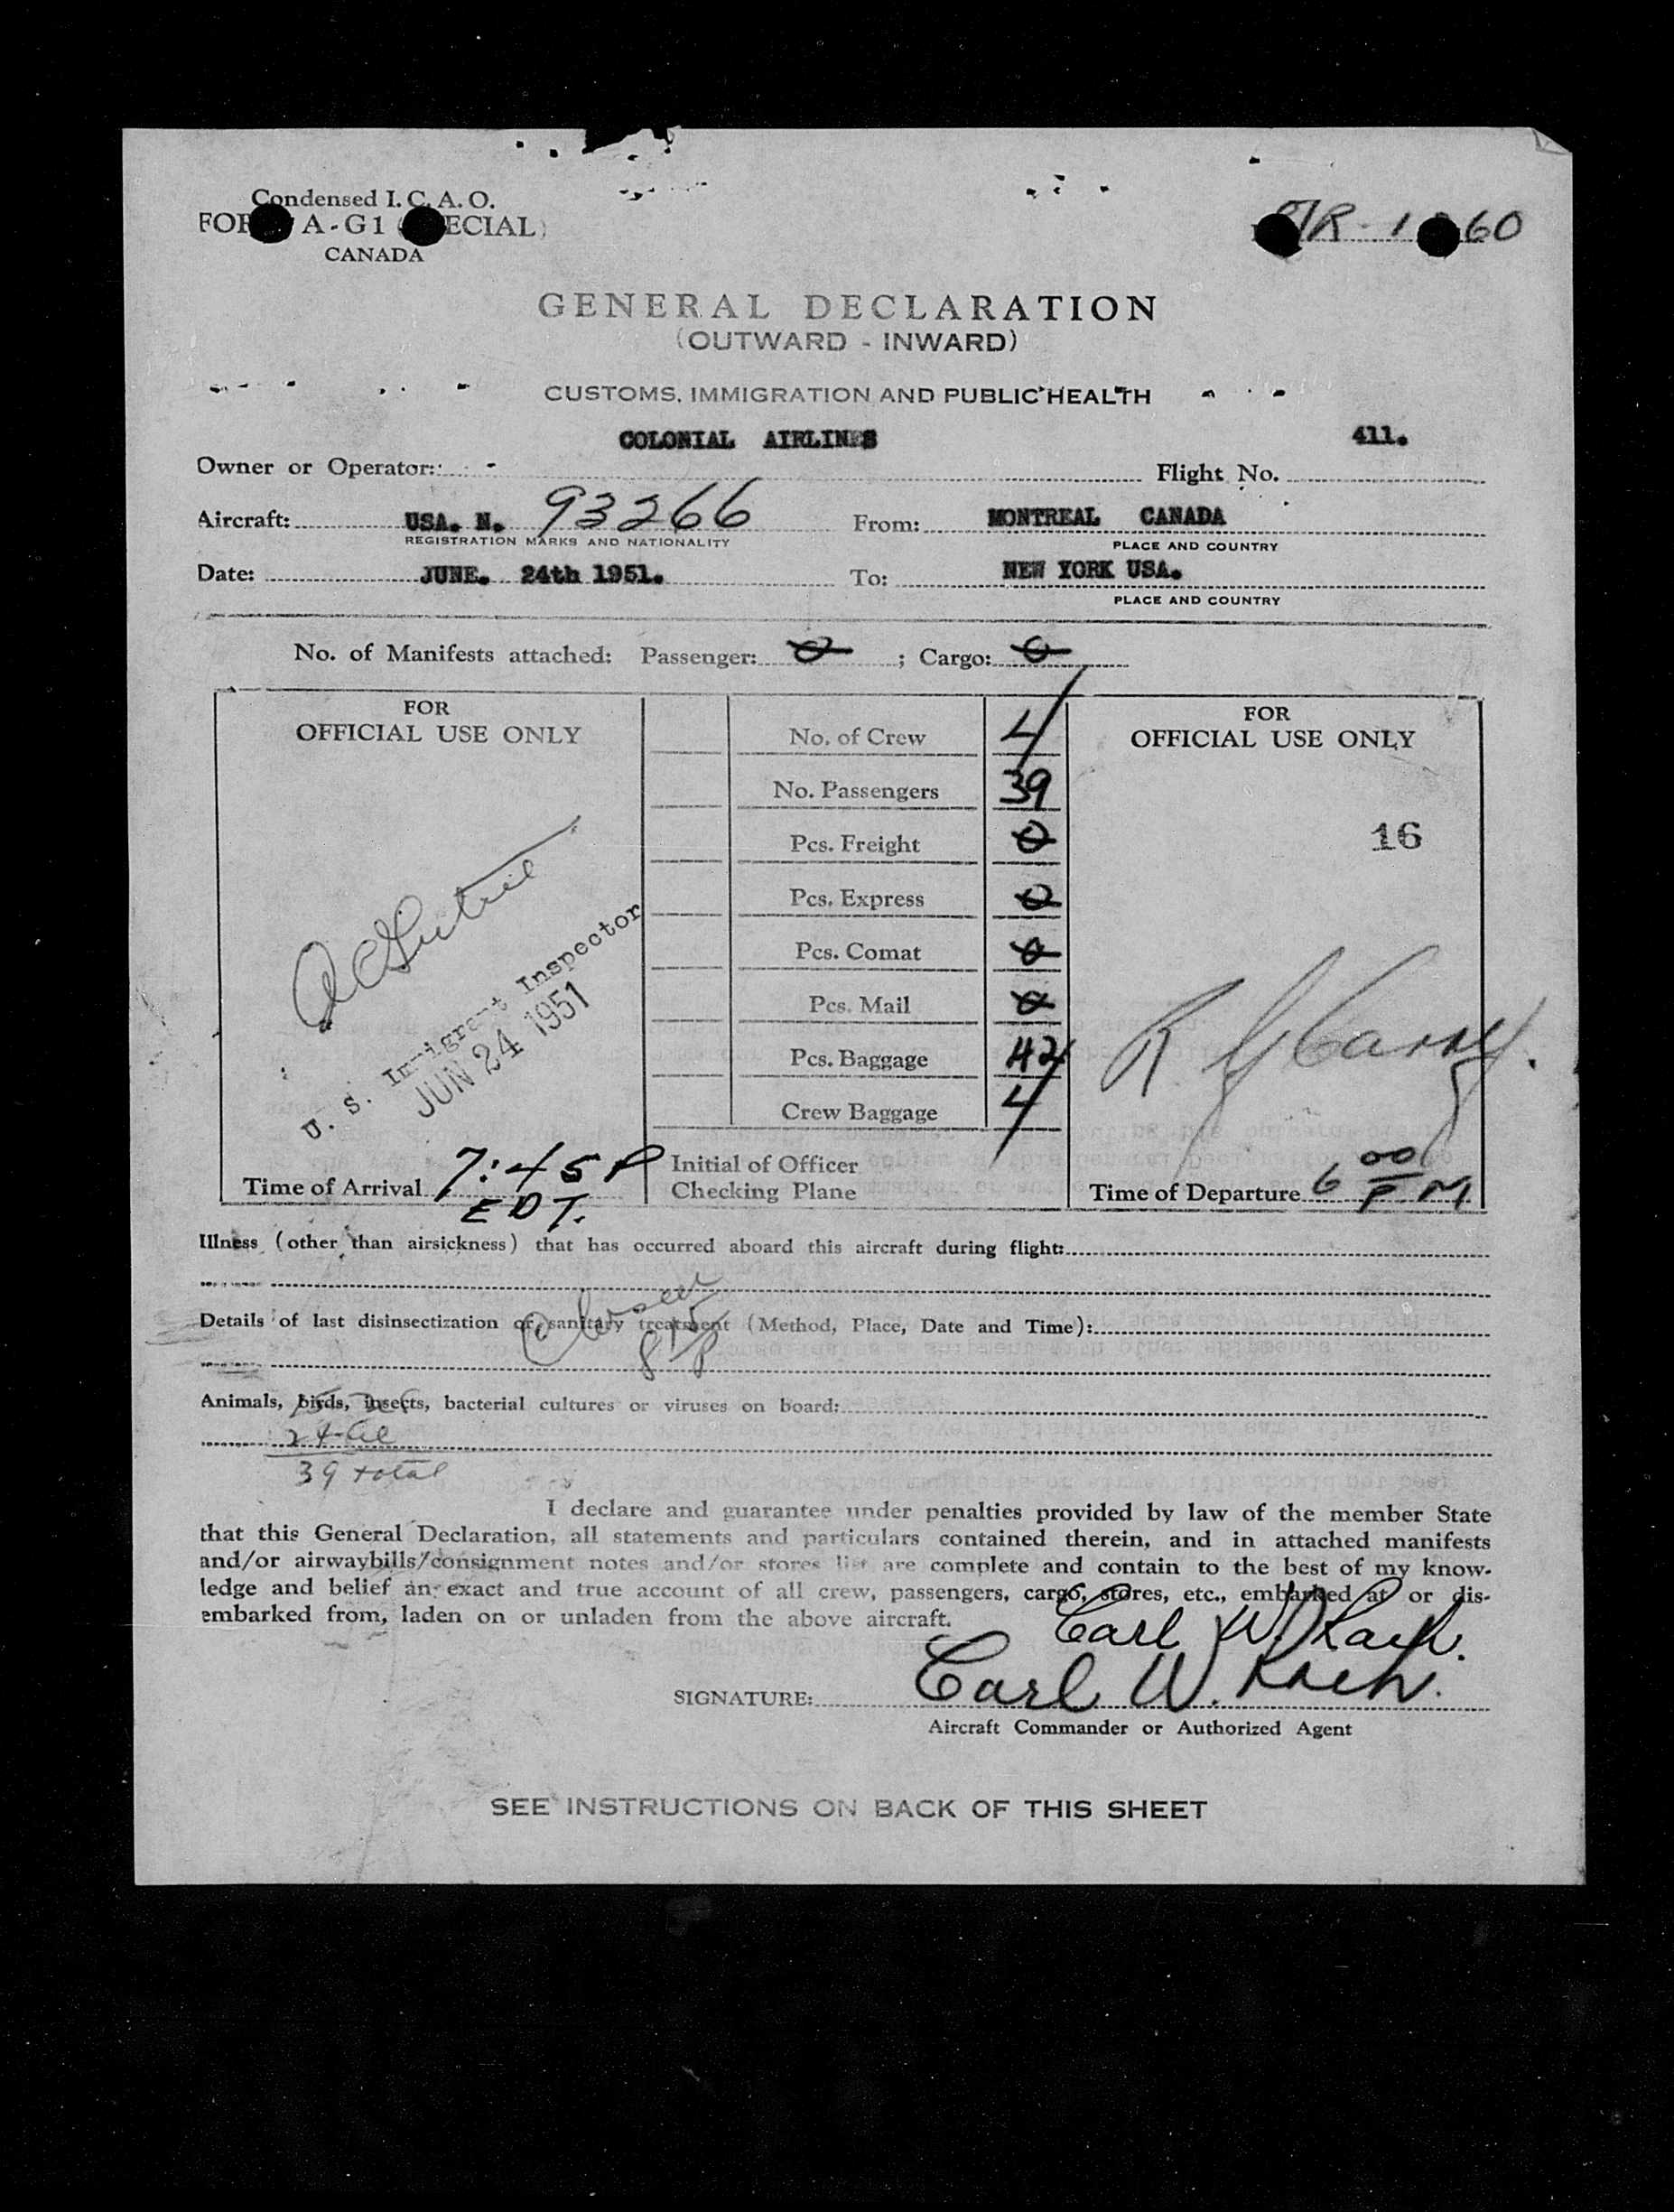 Condensed I. C. A. O.
A-G1
CANADA
60
GENERAL DECLARATION
(OUTWARD - INWARD)
CUSTOMS, IMMIGRATION AND PUBLIC HEALTH
COLONIAL AIRLINES 411.
Owner or Operator: Flight No.
Aircraft: USA. N. 93266 From: MONTREAL CANADA
REGISTRATION MARKS AND NATIONALITY PLACE AND COUNTRY
Date: JUNE. 24th 1951. To: NEW YORK USA.
PLACE AND COUNTRY
No. of Manifests attached: Passenger: 0 ; Cargo: 0
FOR
OFFICIAL USE ONLY
U. S. Immigrant Inspector
JUN 24 1951
Time of Arrival 7:45 P
EDT.
No. of Crew 4
No. Passengers 39
Pcs. Freight 0
Pcs. Express 0
Pcs. Comat 0
Pcs. Mail 0
Pcs. Baggage 42
Crew Baggage 4
Initial of Officer
Checking Plane
FOR
OFFICIAL USE ONLY
16
Time of Departure 6 00 PM
Illness (other than airsickness) that has occurred aboard this aircraft during flight:
Details of last disinsectization or sanitary treatment (Method, Place, Date and Time):
815 P
Animals, birds, insects, bacterial cultures or viruses on board:
24
39 total
I declare and guarantee under penalties provided by law of the member State
that this General Declaration, all statements and particulars contained therein, and in attached manifests
and/or airwaybills/consignment notes and/or stores list are complete and contain to the best of my know-
ledge and belief an exact and true account of all crew, passengers, cargo, stores, etc., embarked at or dis-
embarked from, laden on or unladen from the above aircraft.
Carl W.
SIGNATURE: Carl W.
Aircraft Commander or Authorized Agent
SEE INSTRUCTIONS ON BACK OF THIS SHEET